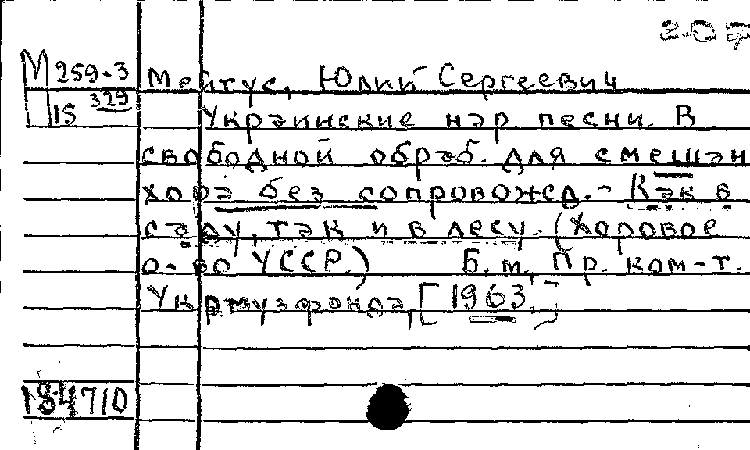 207
М 259.3 Мейтус, Юлий Сергеевич
П 15 329 Украинские нар песни. В
свободной обраб. для смешан
хора без сопровожд. - Как в
саду, так и в лесу. (Хоровое
о-во УССР.) Б.м., Пр. ком-т.
Укрмузфонда, [1963.]
184710